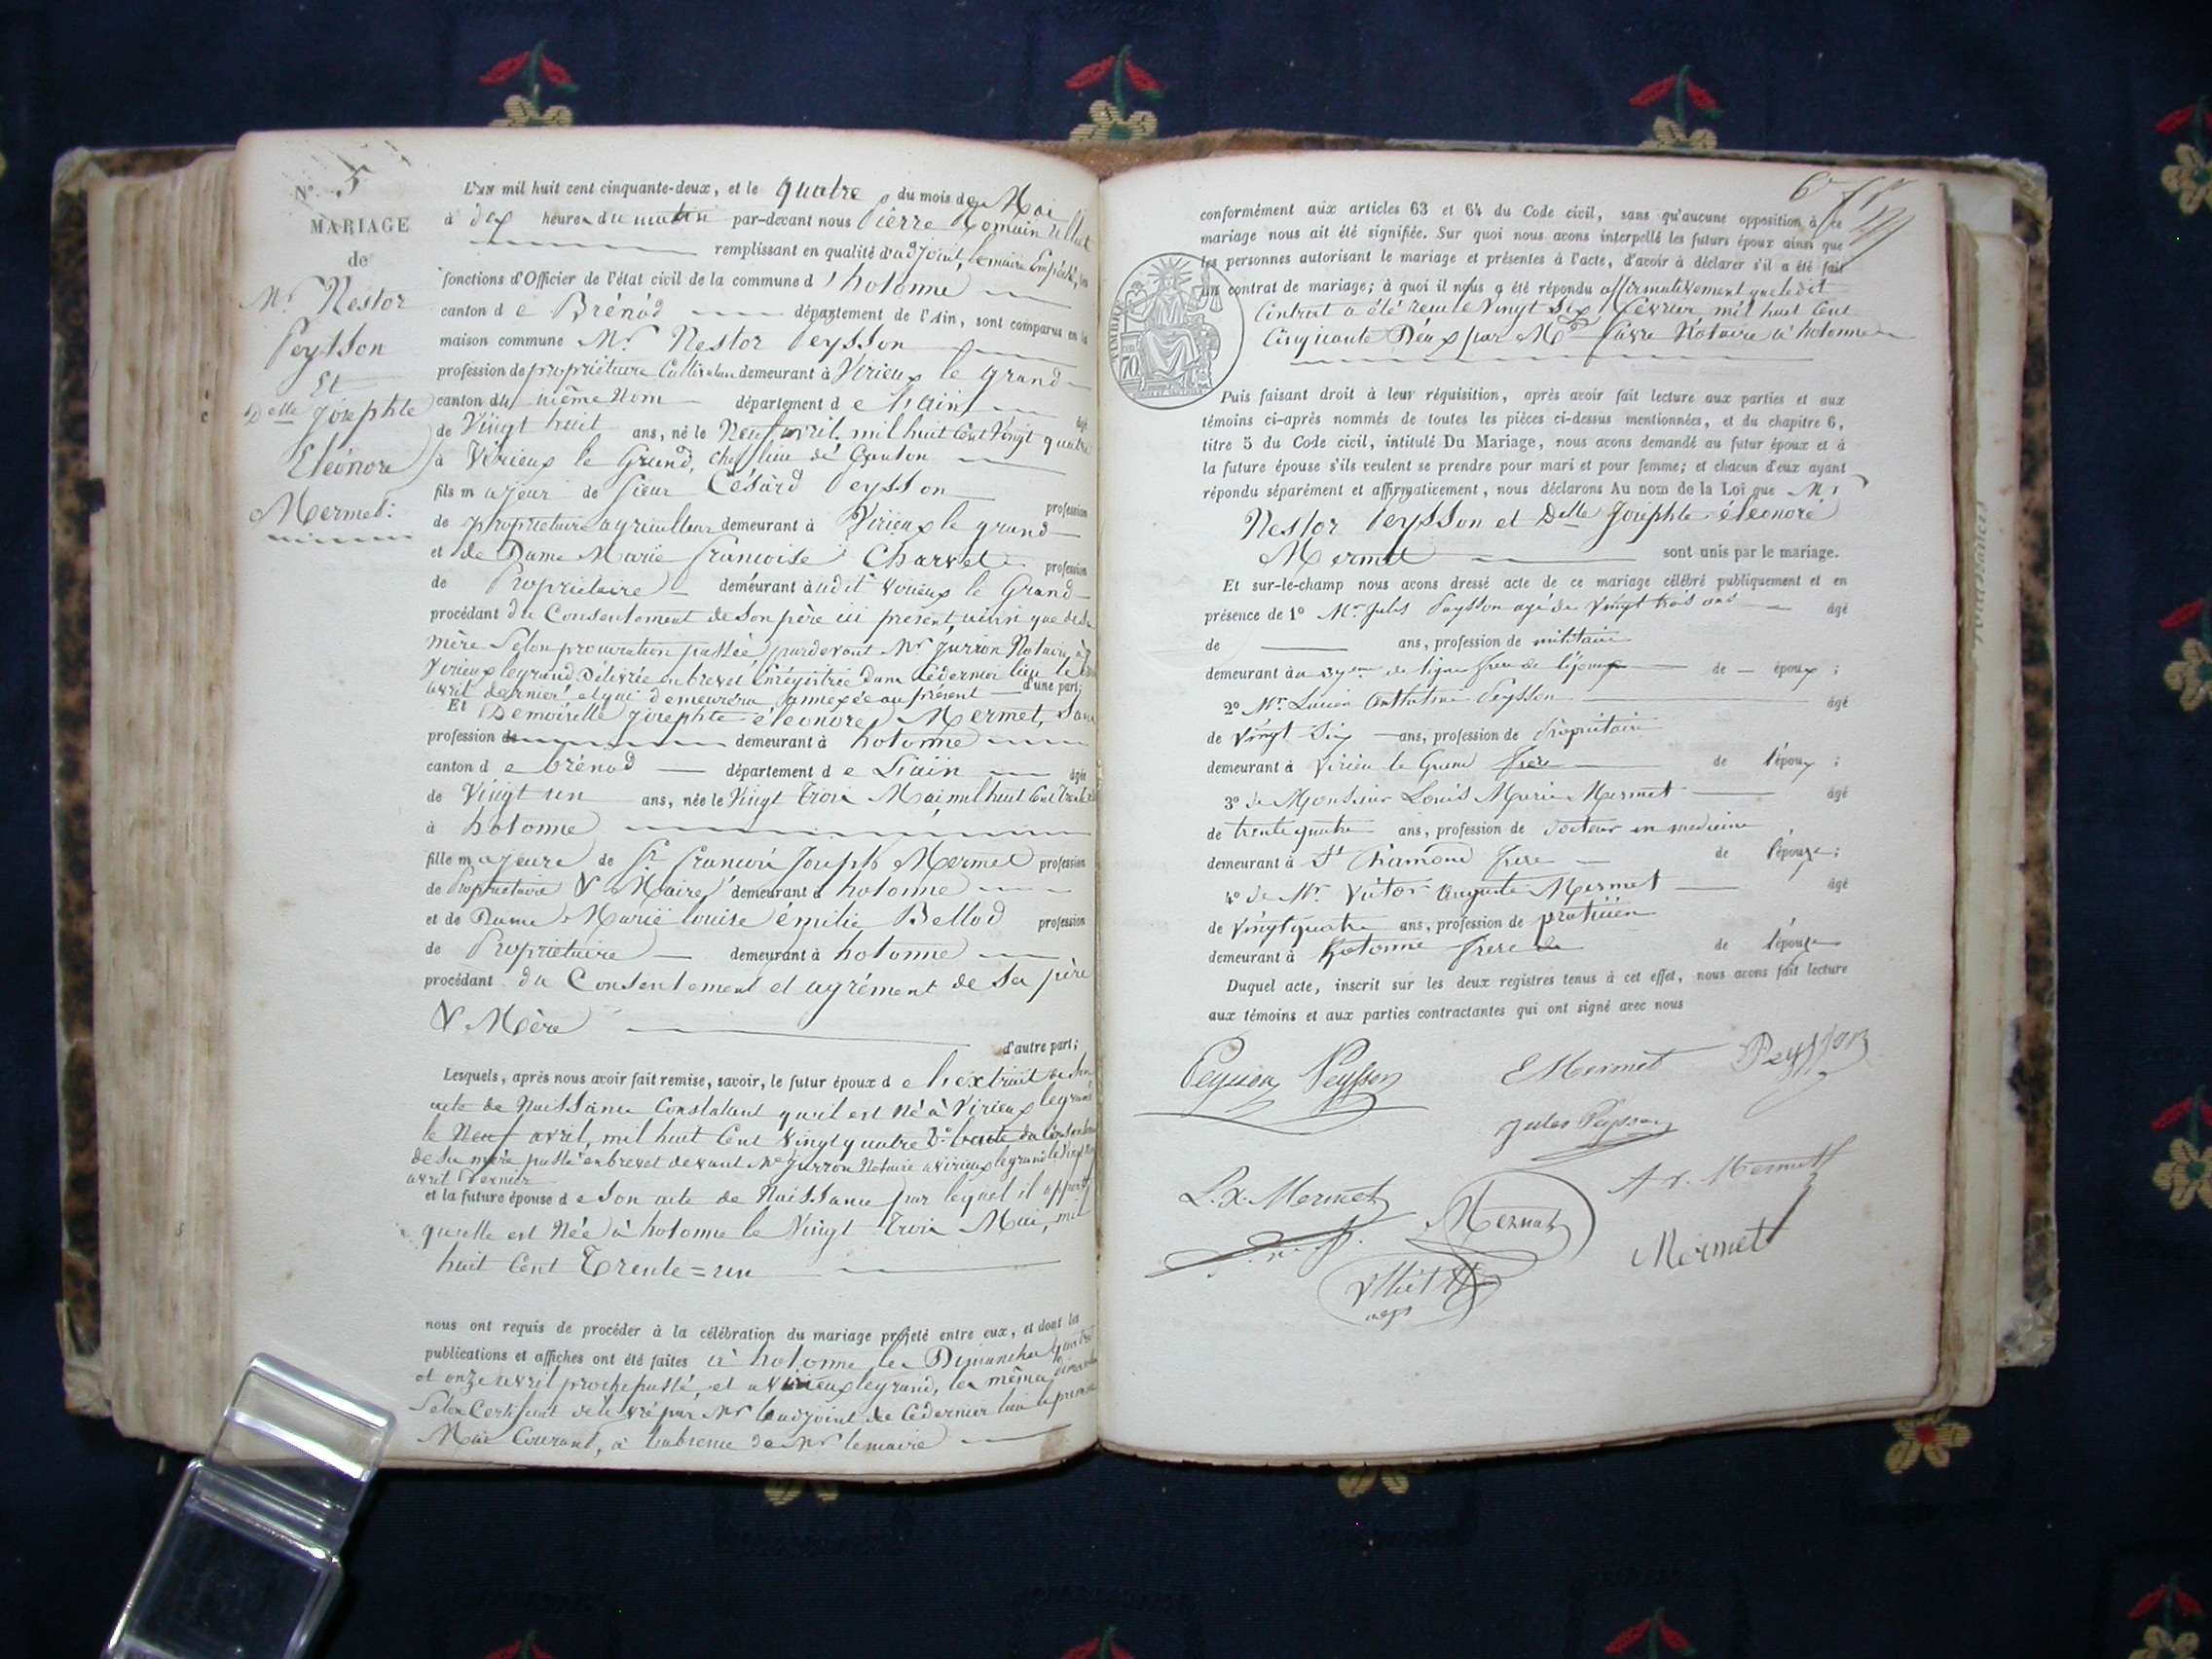 N.º 5
MARIAGE
de
Mr Nestor
Peysson
Et
Delle Josephte
Eléonore
Mermet.
L'an mil huit cent cinquante-deux, et le quatre du mois de Mai
à dix heures du matin par-devant nous Pierre Romain
remplissant en qualité d'adjoint, le maire Empêché, les
fonctions d'Officier de l'état civil de la commune d'hotonne
canton de Brénod département de l'Ain, sont comparus en la
maison commune Mr Nestor Peysson
profession de propriétaire Cultivateur demeurant à Virieux le grand
canton du même Nom département de l'ain âgé
de Vingt huit ans, né le Neuf avril, mil huit Cent Vingt quatre
à Virieux le Grand, chef lieu de Canton
fils majeur de sieur Césard Peysson profession
de propriétaire agriculteur demeurant à Virieux le grand
et de Dame Marie francoise Charvet profession
de Propriétaire demeurant audit Virieux le Grand
procédant du Consentement de son père ici présent, ainsi que de sa
mère Selon procuration passée pardevant Mr Jurron Notaire, à
Virieux legrand, Délivrée en brevet Enrégistrée dans cedernier lieu le
avril dernier et qui demeurera annexée au présent d'une part;
Et Demoiselle josephte éléonore Mermet, Sans
profession de demeurant à hotonne
canton de brénod département de L'ain âgée
de Vingt un ans, née le Vingt Trois Mai, mil huit Cent Trente un
à hotonne
fille majeure de Sr francois Joseph Mermet profession
de Propriétaire & Maire demeurant à hotonne
et de Dame Marie louise émilie Bellod profession
de Propriétaire demeurant à hotonne
procédant du Consentement et agrément de Sa père
& Mère
d'autre part;
Lesquels, après nous avoir fait remise, savoir, le futur époux de l'extrait de Son
acte de Naissance Constatant qu'il est Né à Virieux legrand
le Neuf avril, mil huit Cent Vingt quatre 2º l'acte du Consentement
de Sa mère passé en brevet devant Me Jurron Notaire a Virieux legrand le Vingt
avril Dernier
et la future épouse de Son acte de Naissance par lequel il appert
qu'elle est Née à hotonne le Vingt Trois Mai, mil
huit Cent Trente=un
nous ont requis de procéder à la célébration du mariage projeté entre eux, et dont les
publications et affiches ont été faites à hotonne les Dimanches quatre
et onze avril proche passé, et a Virieux legrand, les mêmes dimanches
Selon Certificat délivré par Mr l'adjoint de Cedernier lieu le premier
Mai Courant, à l'absence de Mr lemaire
conformément aux articles 63 et 64 du Code civil, sans qu'aucune opposition à ce
mariage nous ait été signifiée. Sur quoi nous avons interpellé les futurs époux ainsi que
les personnes autorisant le mariage et présentes à l'acte, d'avoir à déclarer s'il a été fait
un contrat de mariage; à quoi il nous a été répondu affirmativement que ledit
Contrat a été reçu le Vingt Six Février mil huit Cent
Cinquante Deux par Me favre Notaire à hotonne
TIMBRE
70
Puis faisant droit à leur réquisition, après avoir fait lecture aux parties et aux
témoins ci-après nommés de toutes les pièces ci-dessus mentionnées, et du chapitre 6,
titre 5 du Code civil, intitulé Du Mariage, nous avons demandé au futur époux et à
la future épouse s'ils veulent se prendre pour mari et pour femme; et chacun d'eux ayant
répondu séparément et affirmativement, nous déclarons Au nom de la Loi que Mr
Nestor Peysson et Delle Josephte éléonore
Mermet sont unis par le mariage.
Et sur-le-champ nous avons dressé acte de ce mariage célébré publiquement et en
présence de 1º Mr Jules Peysson agé de Vingt trois ans âgé
de ans, profession de militaire
demeurant au de ligne frere de l'époux de époux;
2º Mr Lucien Anthelme Peysson âgé
de Vingt Six ans, profession de Propriétaire
demeurant à Virieu le Grand frere de l'époux;
3º de Monsieur Louis Marie Mermet âgé
de trente quatre ans, profession de docteur en medecine
demeurant à St Chamond frere de l'épouse;
4º de Mr Victor Auguste Mermet âgé
de Vingt quatre ans, profession de praticien
demeurant à hotonne frere de de l'épouse
Duquel acte, inscrit sur les deux registres tenus à cet effet, nous avons fait lecture
aux témoins et aux parties contractantes qui ont signé avec nous
Peysson Peysson E Mermet Peysson
Jules Peysson
L. X. Mermet Mermet A v. Mermet
Mermet